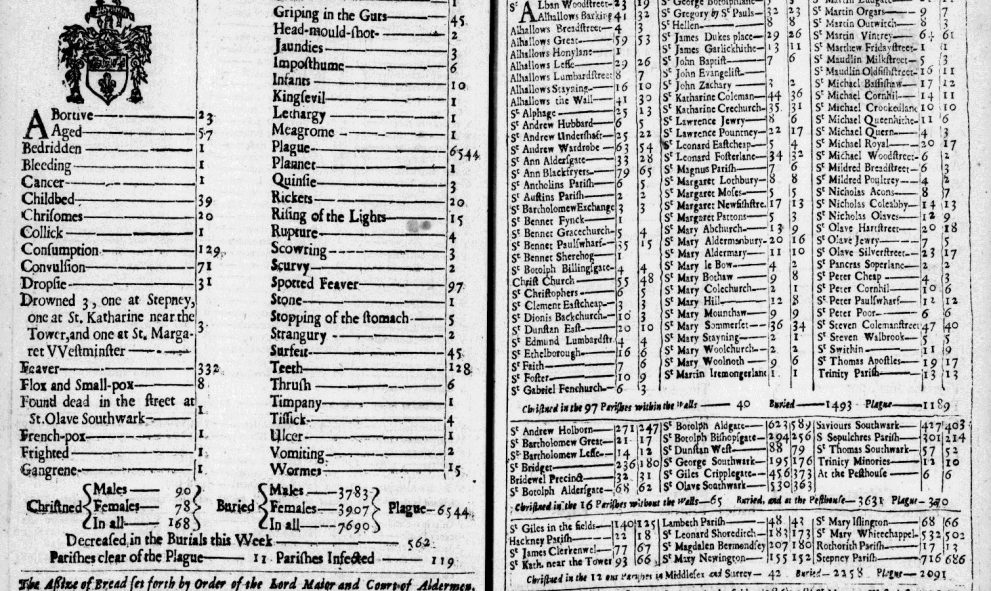 Abortive 23
Aged 57
Bedridden 1
Bleeding 1
Cancer 1
Childbed 39
Chrisomes 20
Collick 1
Consumption 129
Convulsion 71
Dropsie 31
Drowned 3, one at Stepney,
one at St. Katharine near the
Tower, and one at St. Marga- 3
ret VVestminster
Feaver 332
Flox and Small-pox 8
Found dead in the street at
St. Olave Southwark 1
French-pox 1
Frighted 1
Gangrene 1
Griping in the Guts 45
Head-mould-shot 2
Jaundies 3
Imposthume 6
Infants 10
Kingsevil 1
Lethargy 1
Meagrome 1
Plague 6544
Plannet 1
Quinsie 3
Rickets 20
Rising of the Lights 15
Rupture 4
Scowring 3
Scurvy 2
Spotted Feaver 97
Stone 1
Stopping of the stomach 5
Strangury 2
Surfeit 45
Teeth 128
Thrush 6
Timpany 1
Tissick 4
Ulcer 1
Vomiting 2
Wormes 15
Christned Males 90 Females 78 In all 168
Buried Males 3783 Females 3907 In all 7690
Plague 6544
Decreased in the Burials this Week 562
Parishes clear of the Plague 11 Parishes Infected 119
The Assize of Bread set forth by Order of the Lord Maior and Court of Aldermen,
St Alban Woodstreet 23 19
Alhallows Barking 41 32
Alhallows Breadstreet 4 3
Alhallows Great 59 53
Alhallows Honylane 1
Alhallows Lesse 29 26
Alhallows Lumbardstreet 8 7
Alhallows Stayning 16 10
Alhallows the Wall 41 30
St Alphage 25 13
St Andrew Hubbard 6 5
St Andrew Undershaft 25 22
St Andrew Wardrobe 63 54
St Ann Aldersgate 33 28
St Ann Blackfryers 79 65
St Antholins Parish 6 5
St Austins Parish 2 2
St Bartholomew Exchange 3 3
St Bennet Fynck 1
St Bennet Gracechurch 5 4
St Bennet Paulswharf 35 15
St Bennet Sherehog 1
St Botolph Billingsgate 4 4
Christ Church 55 48
St Christophers 6 5
St Clement Eastcheap 3 3
St Dionis Backchurch 10 3
St Dunstan East 20 10
St Edmund Lumbardstr. 4 4
St Ethelborough 16 6
St Faith 7 6
St Foster 10 9
St Gabriel Fenchurch 6 3
St George Botolphlane
St Gregory by St Pauls 32 23
St Hellen 8 8
St James Dukes place 29 26
St James Garlickhithe 13 11
St John Baptist 7 6
St John Evangelist
St John Zachary 3 2
St Katharine Coleman 44 36
St Katharine Crechurch 35 31
St Lawrence Jewry 8 6
St Lawrence Pountney 22 17
St Leonard Eastcheap 5 4
St Leonard Fosterlane 34 32
St Magnus Parish 7 6
St Margaret Lothbury 8 8
St Margaret Moses 5 5
St Margaret Newfishstre. 17 13
St Margaret Pattons 5 3
St Mary Abchurch 13 9
St Mary Aldermanbury 20 16
St Mary Aldermary 11 10
St Mary le Bow 4 2
St Mary Bothaw 9 8
St Mary Colechurch 2 1
St Mary Hill 12 8
St Mary Mounthaw 9 9
St Mary Sommerset 36 34
St Mary Stayning 2 1
St Mary Woolchurch 2 2
St Mary Woolnoth 9 6
St Martin Iremongerlane 1 1
St Martin Ludgate
St Martin Orgars 9 7
St Martin Outwitch 8 3
St Martin Vintrey 64 61
St Matthew Fridaystreet 1 1
St Maudlin Milkstreet 5 3
St Maudlin Oldfishstreet 16 11
St Michael Bassishaw 17 12
St Michael Cornhil 14 11
St Michael Crookedlane 10 10
St Michael Queenhithe 11 6
St Michael Quern 4 3
St Michael Royal 20 17
St Michael Woodstreet 6 2
St Mildred Breadstreet 6 3
St Mildred Poultrey 4 2
St Nicholas Acons 8 7
St Nicholas Coleabby 14 13
St Nicholas Olaves 12 9
St Olave Hartstreet 20 18
St Olave Jewry 7 5
St Olave Silverstreet 23 17
St Pancras Soperlane 2 2
St Peter Cheap 4 3
St Peter Cornhil 10 6
St Peter Paulswharf 12 12
St Peter Poor 6 6
St Steven Colemanstreet 47 40
St Steven Walbrook 5 5
St Swithin 11 9
St Thomas Apostles 19 17
Trinity Parish 13 13
Christned in the 97 Parishes within the Walls 40 Buried 1493 Plague 1189
St Andrew Holborn 271 247
St Bartholomew Great 21 17
St Bartholomew Lesse 14 12
St Bridget 236 180
Bridewel Precinct 32 31
St Botolph Aldersgate 68 62
St Botolph Aldgate 623 589
St Botolph Bishopsgate 294 256
St Dunstan West 88 79
St George Southwark 195 176
St Giles Cripplegate 456 373
St Olave Southwark 530 363
Saviours Southwark 427 403
S Sepulchres Parish 301 214
St Thomas Southwark 57 52
Trinity Minories 12 10
At the Pesthouse 6 6
Christned in the 16 Parishes without the Walls 65 Buried, and at the Pesthouse 3631 Plague
St Giles in the fields 140 125
Hackney Parish 22 18
St James Clerkenwel 77 67
St Kath. near the Tower 93 66
Lambeth Parish 48 43
St Leonard Shoreditch 183 173
St Magdalen Bermondsey 207 180
St Mary Newington 155 152
St Mary Islington 68 66
St Mary Whitechappel 532 502
Rothorith Parish 17 13
Stepney Parish 716 686
Christned in the 12 out Parishes in Middlesex and Surrey 42 Buried 2258 Plague 2091